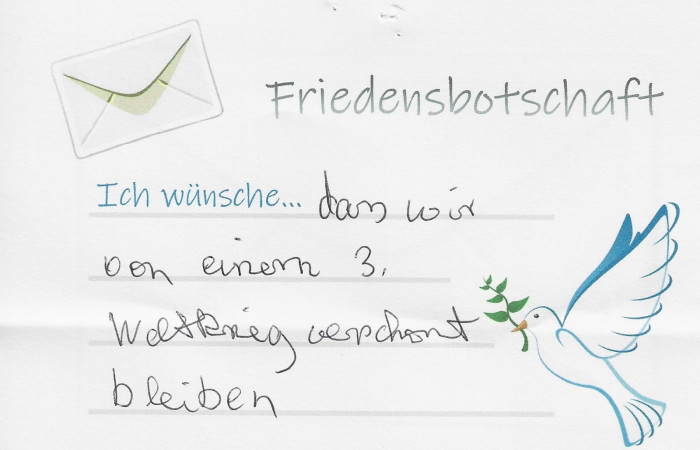 Friedensbotschaft
Ich wünsche... dass wir
von einem 3.
Weltkrieg verschont
bleiben